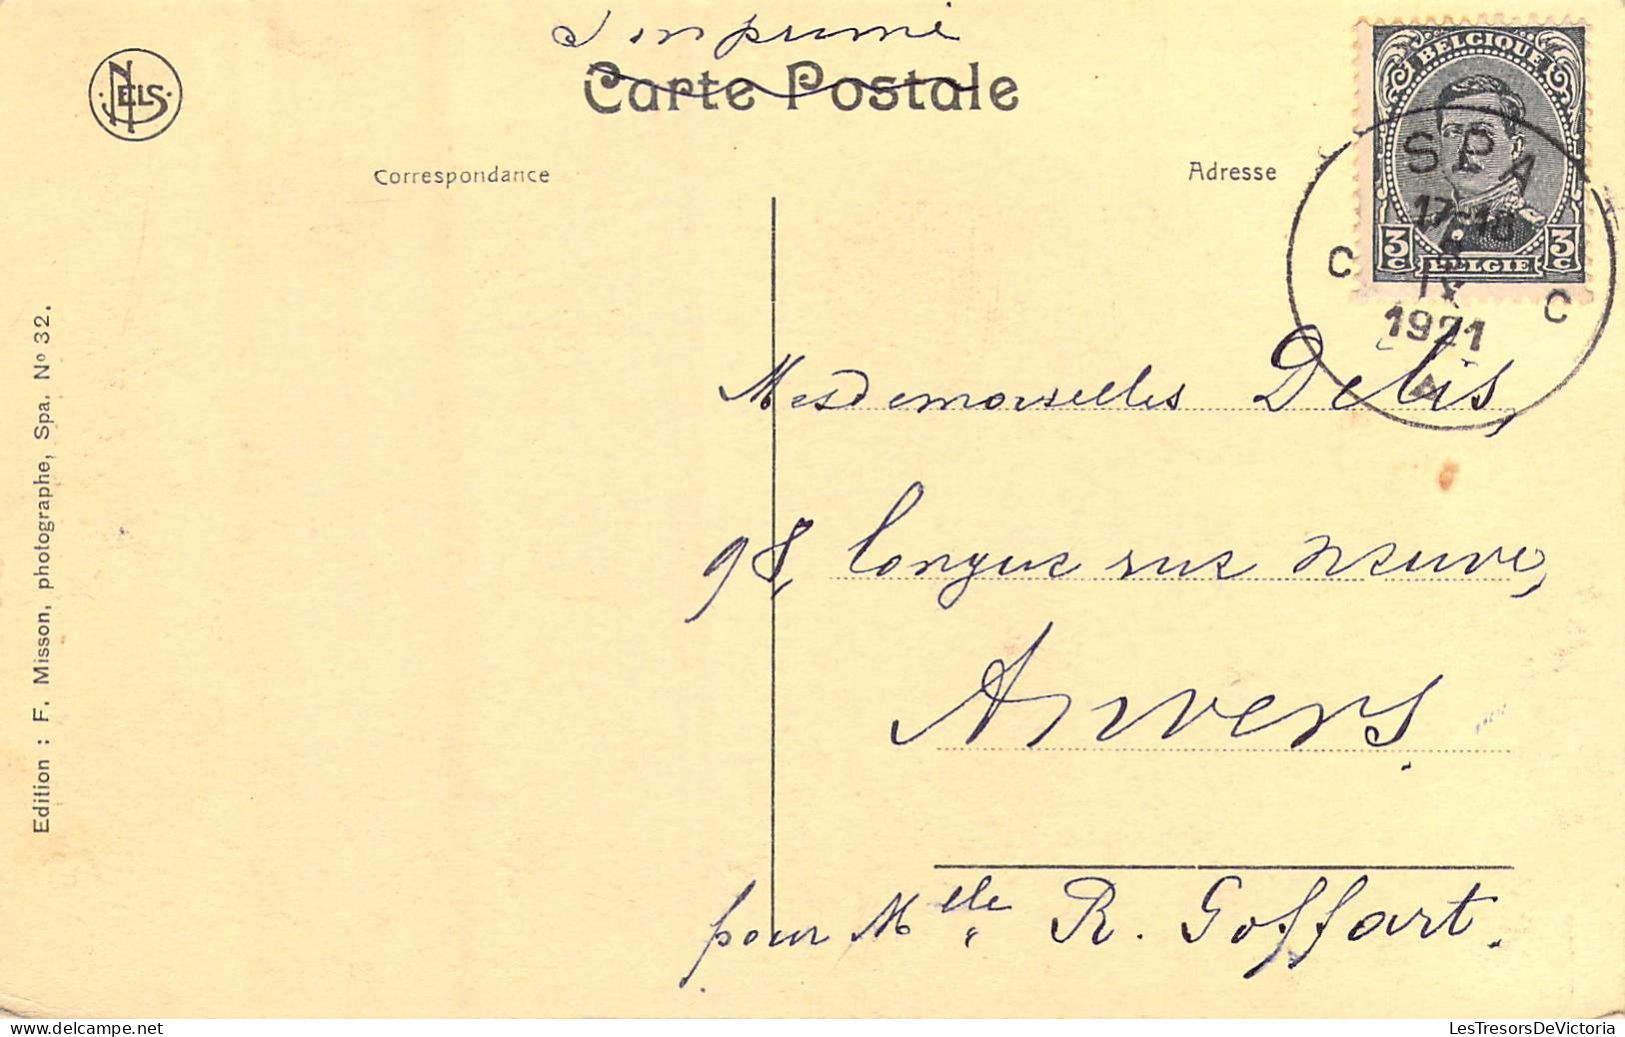 Imprimé
Carte Postale
NELS
Correspondance
Adresse
BELGIQUE
3c 3c
BELGIE
SPA
17-18
IX
1921
C C
Mesdemoiselles Delis,
98, longue rue neuve,
Anvers.
pour Mlle R. Goffart.
Edition : F. Misson, photographe, Spa. Nº 32.
www.delcampe.net
LesTresorsDeVictoria